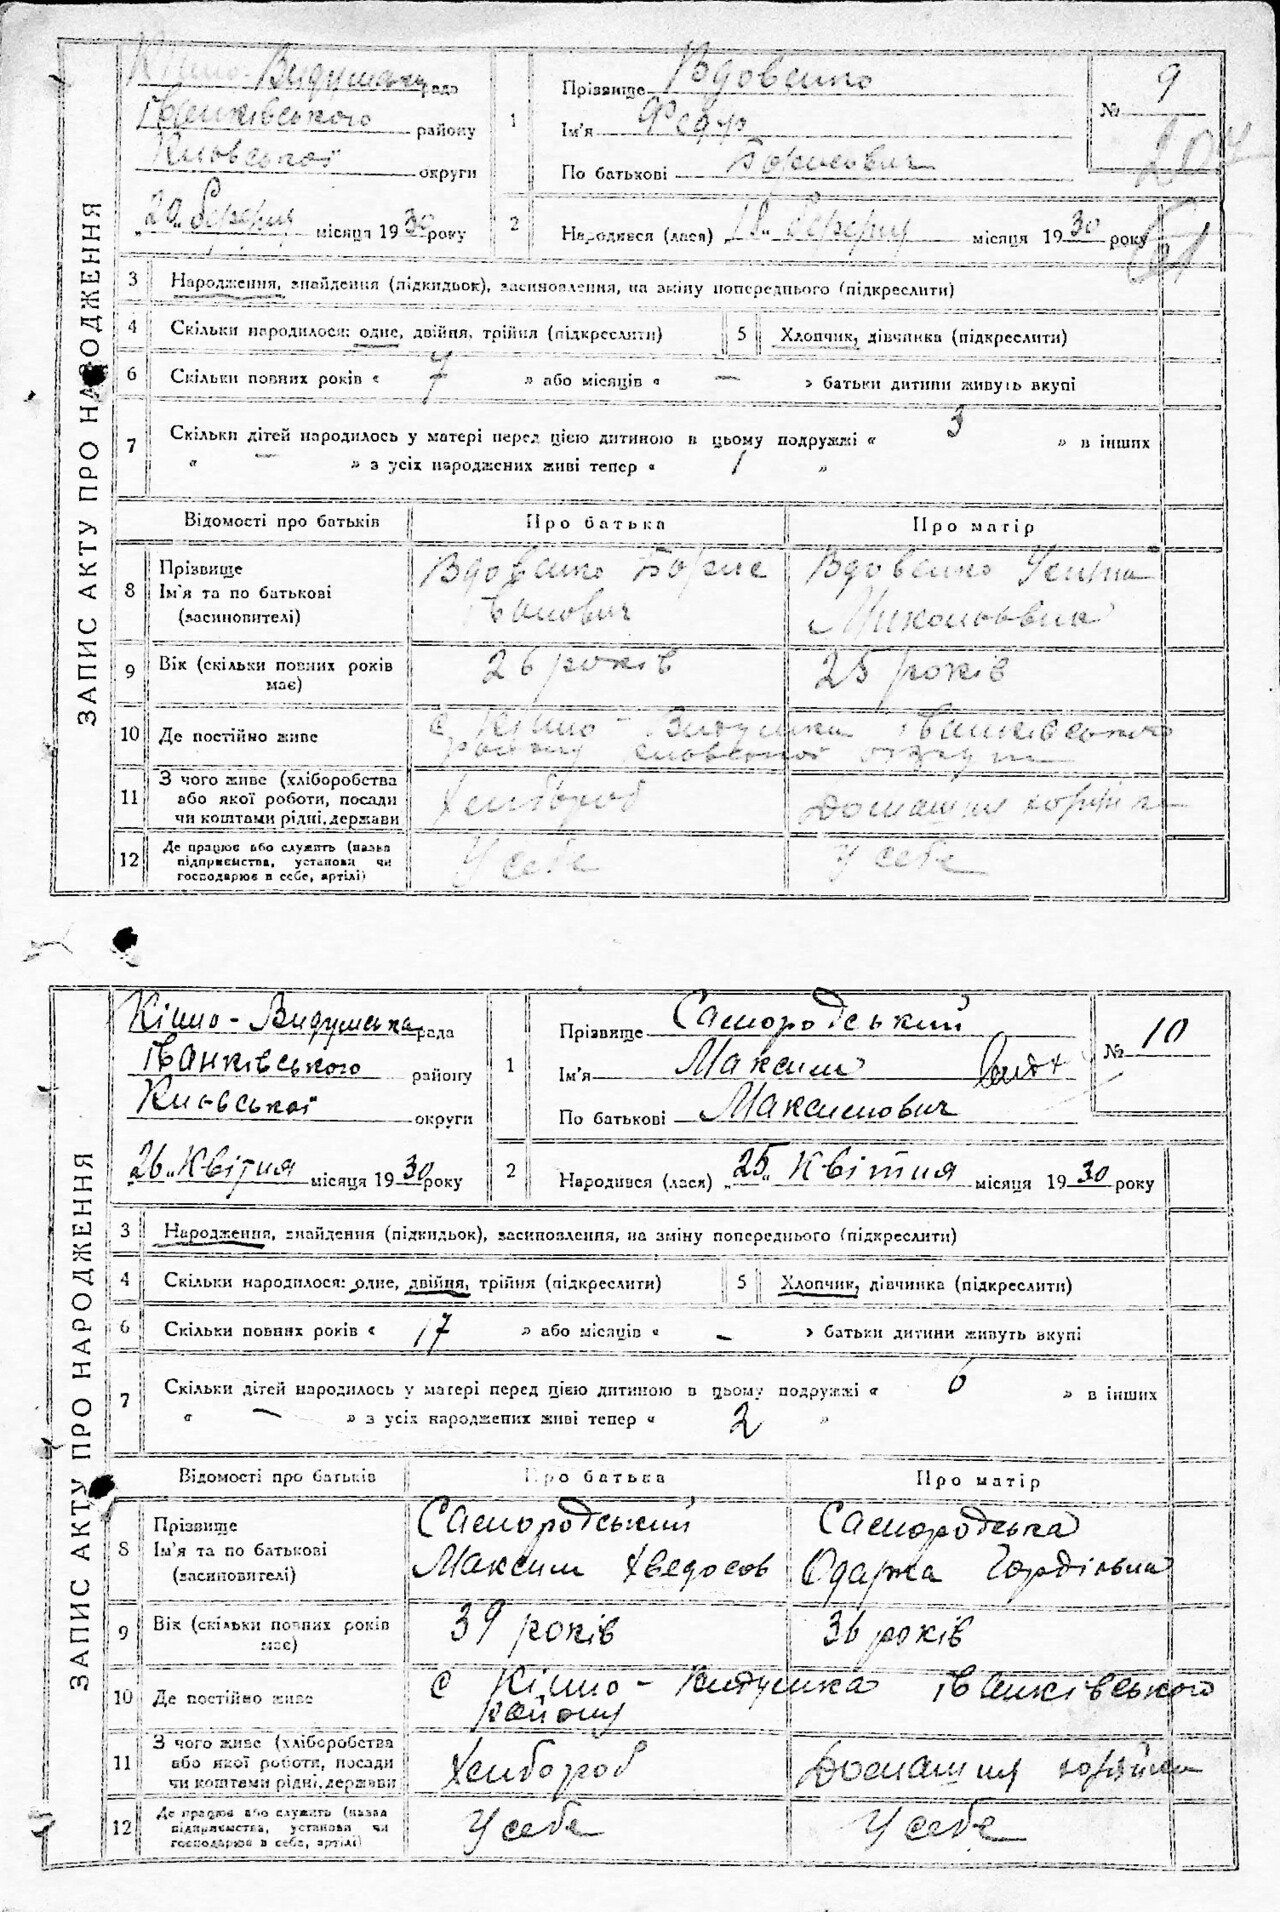 ЗАПИС АКТУ ПРО НАРОДЖЕННЯ
Кіпо-Видумська рада
Іванківського району
Київської округи
"20" Березня місяця 1930 року
1 Прізвище Вдовенко
Ім'я Федір
По батькові Борисович
№ 9
204
51
2 Народився (лася) "18" березня місяця 1930 року
3 Народження, знайдення (підкидьок), засиновлення, на зміну попереднього (підкреслити)
4 Скільки народилося: одне, двійня, трійня (підкреслити) 5 Хлопчик, дівчинка (підкреслити)
6 Скільки повних років « 7 » або місяців « – » батьки дитини живуть вкупі
7 Скільки дітей народилось у матері перед цією дитиною в цьому подружжі « 3 » в інших
« – » з усіх народжених живі тепер « 1 »
Відомості про батьків Про батька Про матір
8 Прізвище
Ім'я та по батькові
(засиновителі)
Вдовенко Борис
Іванович
Вдовенко
Миколаївна
9 Вік (скільки повних років
має)
26 років 25 років
10 Де постійно живе
с Кіпо-Видумка Іванківського
району Київської округи
11 З чого живе (хліборобства
або якої роботи, посади
чи коштами рідні, держави
Хлібороб Домашня
12 Де працює або служить (назва
підприємства, установи чи
господарює в себе, артілі)
У себе У себе
ЗАПИС АКТУ ПРО НАРОДЖЕННЯ
Кіпо-Видумська рада
Іванківського району
Київської округи
"26" Квітня місяця 1930 року
1 Прізвище Самородський
Ім'я Максим
По батькові Максимович
№ 10
2 Народився (лася) "25" Квітня місяця 1930 року
3 Народження, знайдення (підкидьок), засиновлення, на зміну попереднього (підкреслити)
4 Скільки народилося: одне, двійня, трійня (підкреслити) 5 Хлопчик, дівчинка (підкреслити)
6 Скільки повних років « 17 » або місяців « – » батьки дитини живуть вкупі
7 Скільки дітей народилось у матері перед цією дитиною в цьому подружжі « 6 » в інших
« – » з усіх народжених живі тепер « 2 »
Відомості про батьків Про батька Про матір
8 Прізвище
Ім'я та по батькові
(засиновителі)
Самородський
Максим Хведосов
Самородська
Одарка Гордіївна
9 Вік (скільки повних років
має)
39 років 36 років
10 Де постійно живе
с Кіпо-Видумка Іванківського
району
11 З чого живе (хліборобства
або якої роботи, посади
чи коштами рідні, держави
Хлібороб Домашня
12 Де працює або служить (назва
підприємства, установи чи
господарює в себе, артілі)
У себе У себе